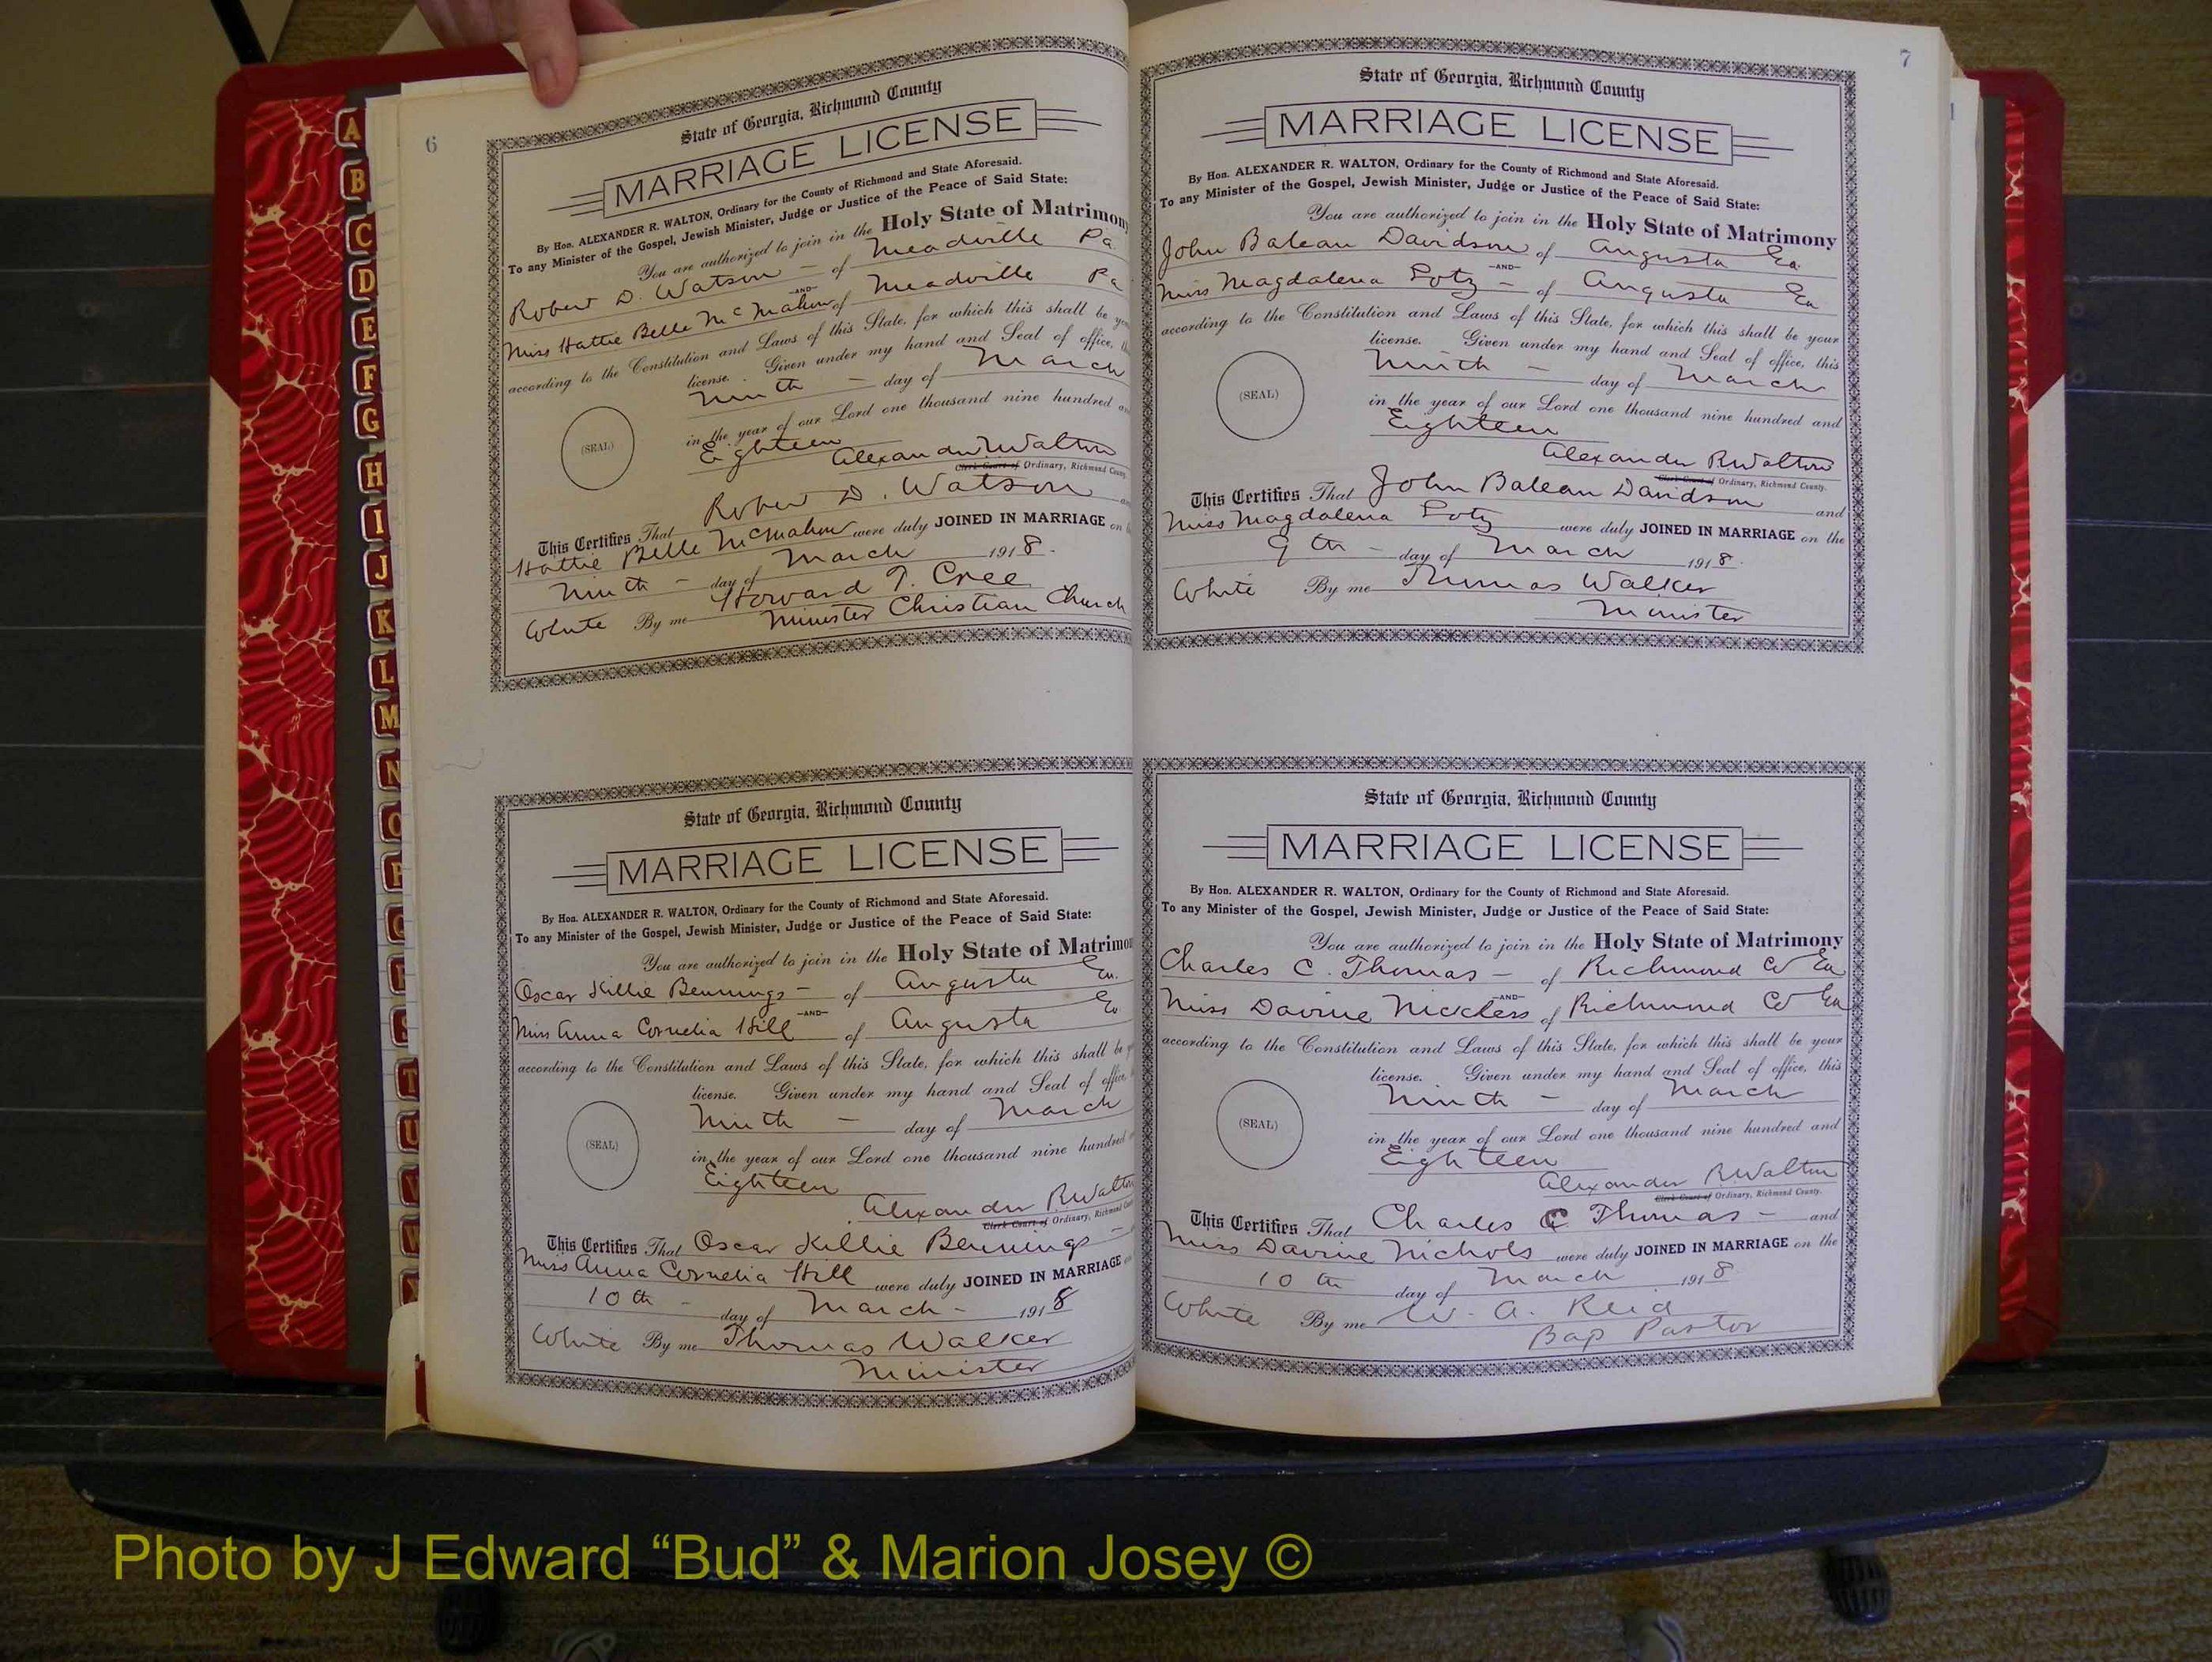 A
B
C
D
E
F
G
H
I
J
K
L
M
N
O
P
Q
R
S
T
U
V
W
6
State of Georgia, Richmond County
MARRIAGE LICENSE
By Hon. ALEXANDER R. WALTON, Ordinary for the County of Richmond and State Aforesaid.
To any Minister of the Gospel, Jewish Minister, Judge or Justice of the Peace of Said State:
You are authorized to join in the Holy State of Matrimony
Robert D. Watson - of Meadville Pa.
-AND-
Miss Hattie Belle McMahon of Meadville Pa
according to the Constitution and Laws of this State, for which this shall be
license. Given under my hand and Seal of office,
Ninth - day of March
in the year of our Lord one thousand nine hundred
Eighteen
(SEAL)
Alexander R Walton
Clerk Court of Ordinary, Richmond
This Certifies That Robert D. Watson
Hattie Belle McMahon were duly JOINED IN MARRIAGE on
Ninth - day of March 1918.
White By me Howard T. Cree
Minister Christian Church
State of Georgia, Richmond County
MARRIAGE LICENSE
By Hon. ALEXANDER R. WALTON, Ordinary for the County of Richmond and State Aforesaid.
To any Minister of the Gospel, Jewish Minister, Judge or Justice of the Peace of Said State:
You are authorized to join in the Holy State of
Oscar Killie Bennings - of Augusta Ga.
-AND-
Miss Anna Cornelia Hill of Augusta Ga
according to the Constitution and Laws of this State, for which this shall be
license. Given under my hand and Seal of office,
Ninth - day of March
in the year of our Lord one thousand nine hundred
Eighteen
(SEAL)
Alexander R Walton
Clerk Court of Ordinary, Richmond
This Certifies That Oscar Killie Bennings -
Miss Anna Cornelia Hill were duly JOINED IN MARRIAGE
10th - day of March - 1918
White By me Thomas Walker
Minister
7
State of Georgia, Richmond County
MARRIAGE LICENSE
By Hon. ALEXANDER R. WALTON, Ordinary for the County of Richmond and State Aforesaid.
To any Minister of the Gospel, Jewish Minister, Judge or Justice of the Peace of Said State:
You are authorized to join in the Holy State of Matrimony
John Balean Davidson of Augusta Ga.
-AND-
Miss Magdalena Potz - of Augusta Ga
according to the Constitution and Laws of this State, for which this shall be your
license. Given under my hand and Seal of office, this
Ninth - day of March
in the year of our Lord one thousand nine hundred and
Eighteen
(SEAL)
Alexander R Walton
Clerk Court of Ordinary, Richmond County.
This Certifies That John Balean Davidson and
Miss Magdalena Potz were duly JOINED IN MARRIAGE on the
9th - day of March 1918.
White By me Thomas Walker
Minister
State of Georgia, Richmond County
MARRIAGE LICENSE
By Hon. ALEXANDER R. WALTON, Ordinary for the County of Richmond and State Aforesaid.
To any Minister of the Gospel, Jewish Minister, Judge or Justice of the Peace of Said State:
You are authorized to join in the Holy State of Matrimony
Charles C. Thomas - of Richmond Co Ga
-AND-
Miss Davine Nickless of Richmond Co Ga
according to the Constitution and Laws of this State, for which this shall be your
license. Given under my hand and Seal of office, this
Ninth - day of March
in the year of our Lord one thousand nine hundred and
Eighteen
(SEAL)
Alexander R Walton
Clerk Court of Ordinary, Richmond County.
This Certifies That Charles C Thomas - and
Miss Davine Nichols were duly JOINED IN MARRIAGE on the
10th day of March 1918
White By me W. A. Reid
Bap Pastor
Photo by J Edward “Bud” & Marion Josey ©